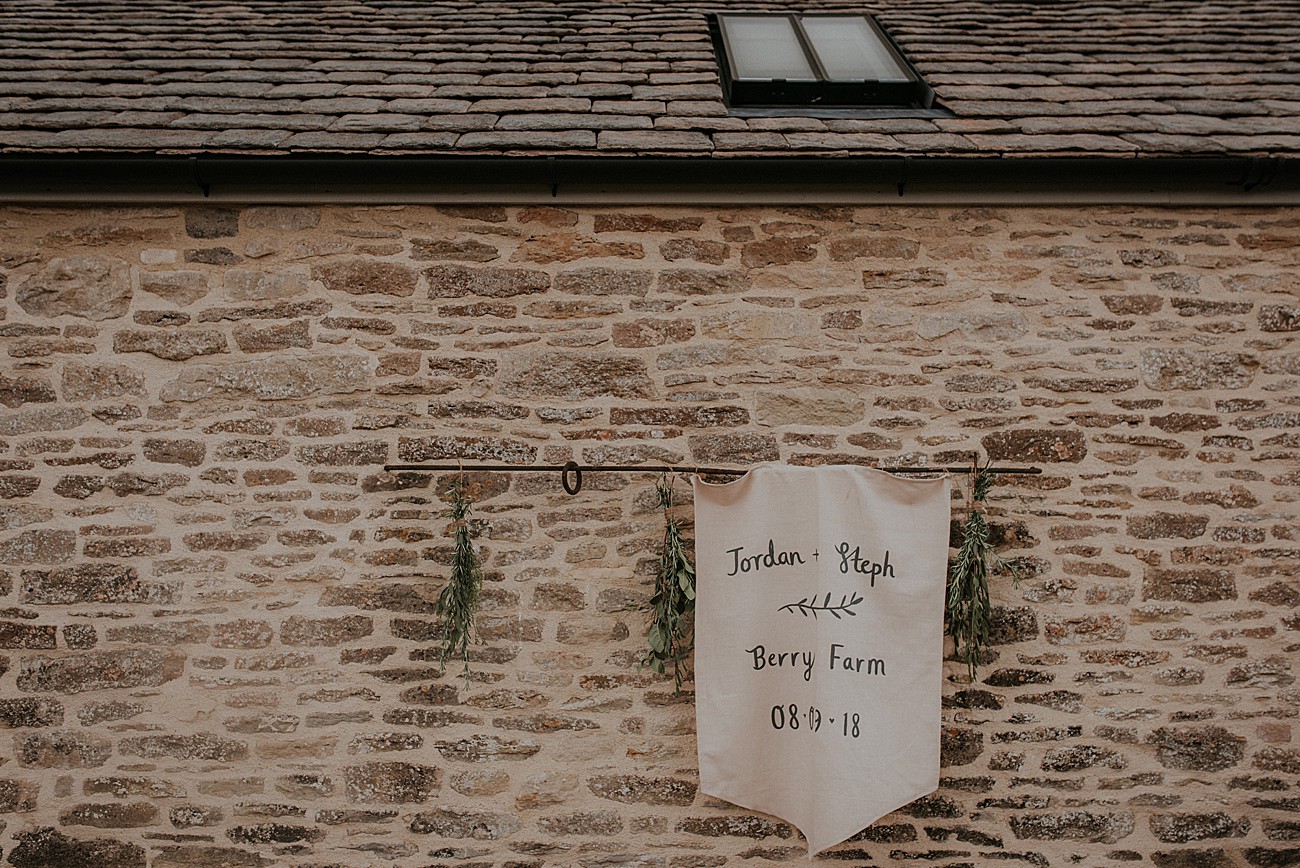 Jordan + Steph
Berry Farm
08·09·18